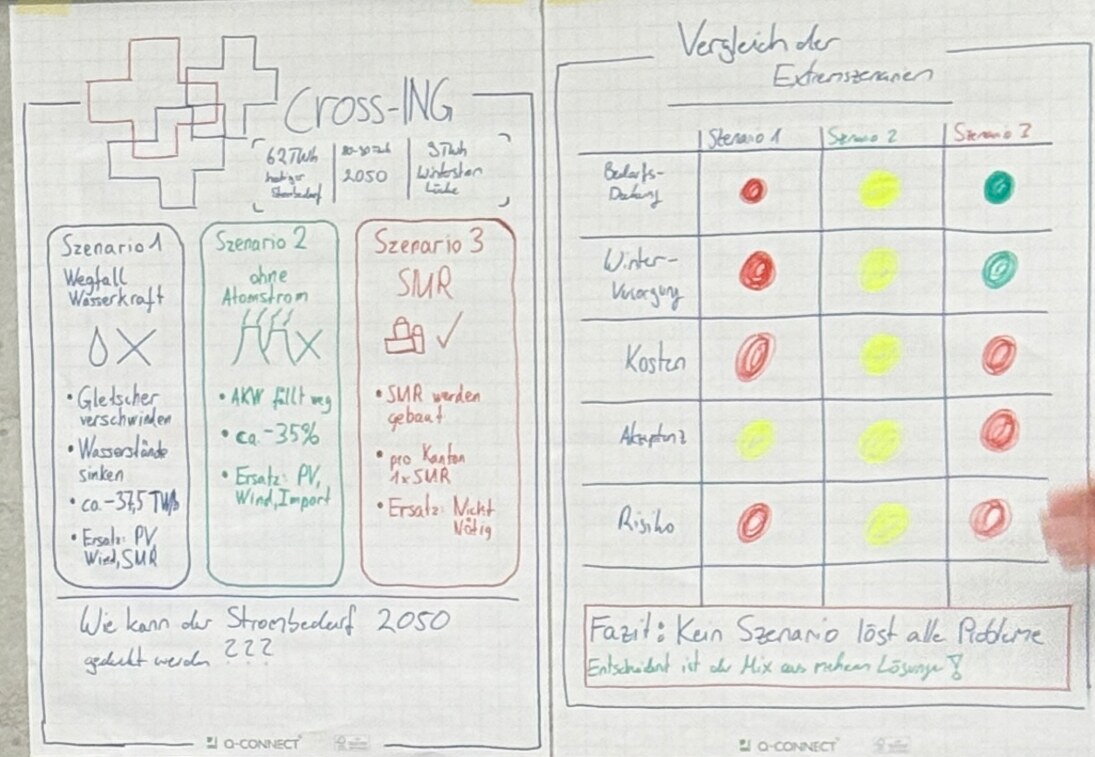 Cross-ING
62 TWh
heutiger
Strombedarf
80-90 TWh
2050
9 TWh
Winterstrom
Lücke
Szenario 1
Wegfall
Wasserkraft
• Gletscher
verschwinden
• Wasserstände
sinken
• ca. -37,5 TWh
• Ersatz: PV,
Wind, SMR
Szenario 2
ohne
Atomstrom
• AKW fällt weg
• ca. -35%
• Ersatz: PV,
Wind, Import
Szenario 3
SMR
• SMR werden
gebaut
• pro Kanton
1x SMR
• Ersatz: Nicht
Nötig
Wie kann der Strombedarf 2050
gedeckt werden ???
Q-CONNECT
Vergleich der
Extremszenarien
Szenario 1
Szenario 2
Szenario 3
Bedarfs-
Deckung
Winter-
Versorgung
Kosten
Akzeptanz
Risiko
Fazit: Kein Szenario löst alle Probleme
Entscheidend ist der Mix aus mehreren Lösungen!
Q-CONNECT